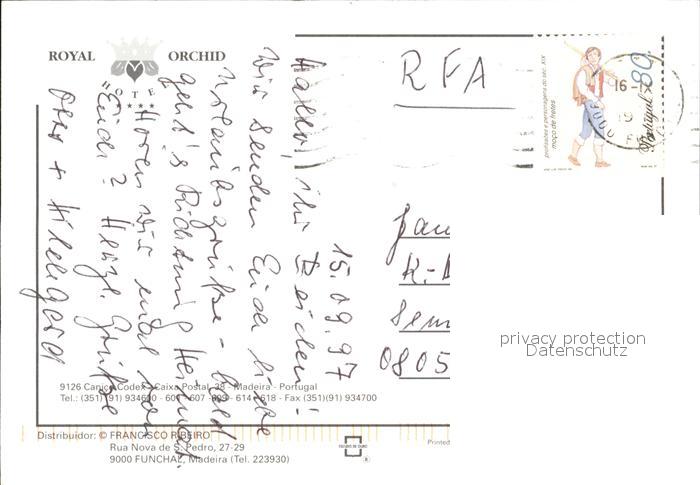 ROYAL ORCHID
HOTEL
★★★★
15.09.97
Hallo, ihr Beiden!
Wir senden Euch liebe
Urlaubsgrüße - bald
geht's Richtung Heimat.
Hören wir mal von
Euch? Herzl. Grüße
Otto + Hildegard
RFA
80
Portugal
profissões e personagens do séc. XIX
moço de fretes
Fam
K-
Sem
0805
privacy protection
Datenschutz
9126 Caniço Codex - Caixa Postal 38 - Madeira - Portugal
Tel.: (351)(91) 934600 - 606 - 607 - 609 - 614 - 618 - Fax (351)(91) 934700
Distribuidor: © FRANCISCO RIBEIRO
Rua Nova de S. Pedro, 27-29
9000 FUNCHAL, Madeira (Tel. 223930)
Printed